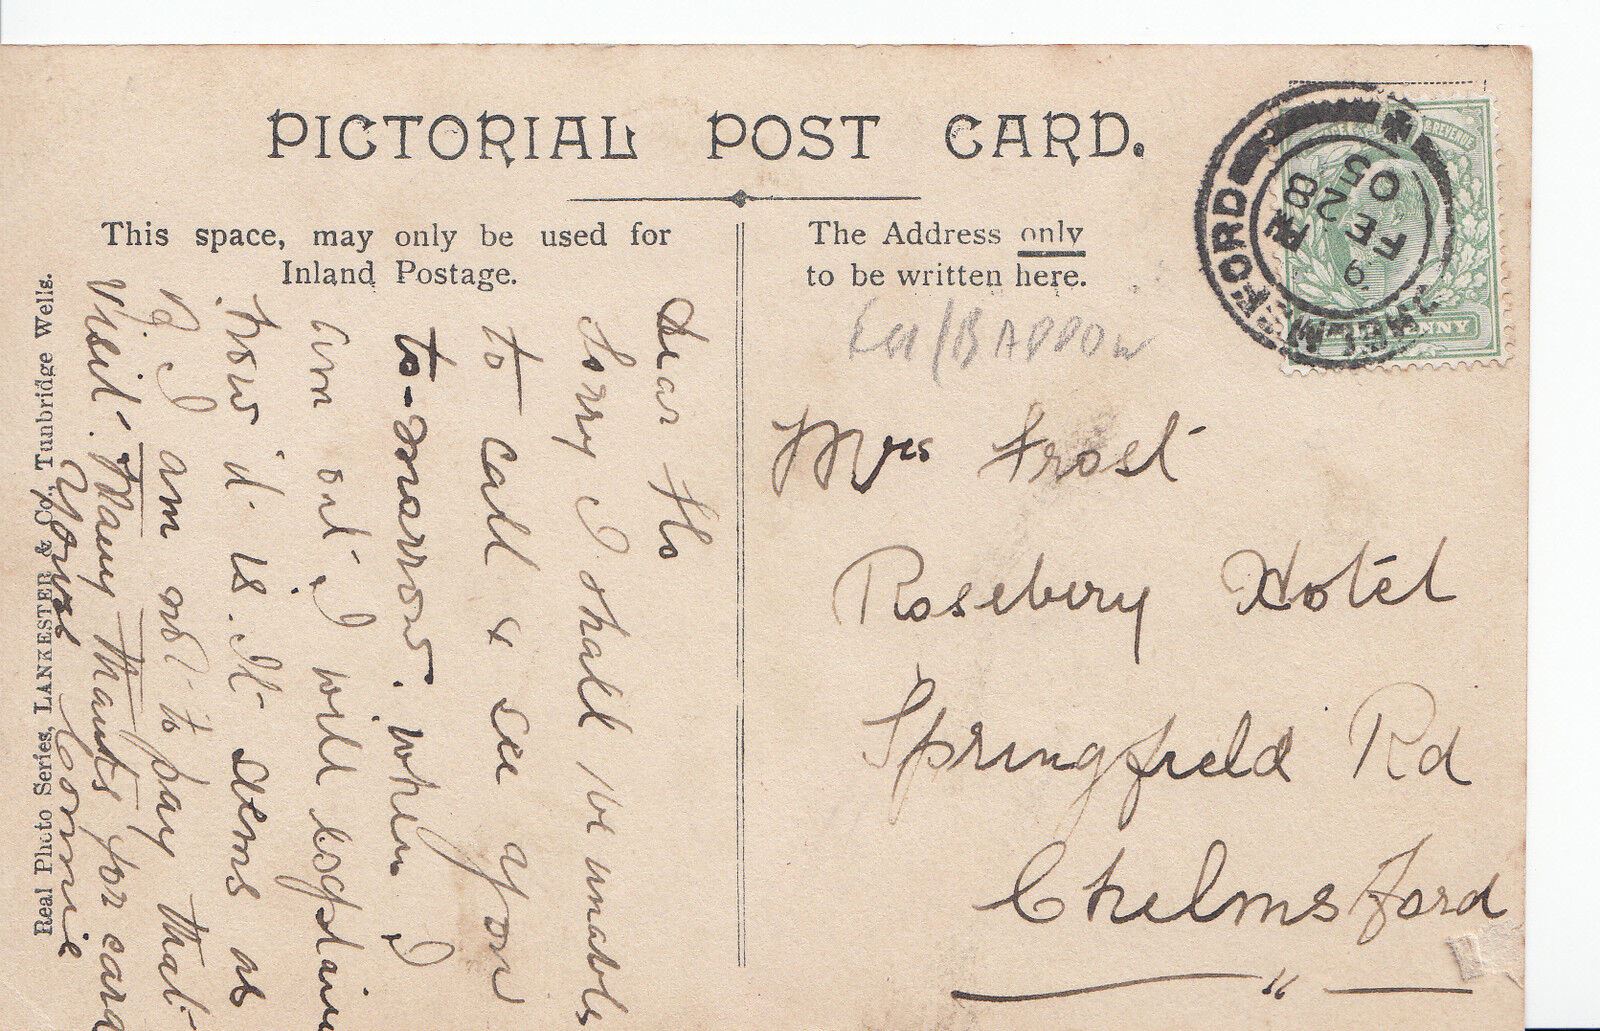 PICTORIAL POST CARD.
This space, may only be used for
Inland Postage.
The Address only
to be written here.
Dear Flo
Sorry I shall be unable
to call & see you
to-morrow. when I
am out, I will explain
how it is. It seems as
if I am not to pay that
visit. Many Thanks for card
Yours
Connie
Real Photo Series, LANKESTER & Co., Tunbridge Wells.
BADDOW
Mrs Frost
Rosebery Hotel
Springfield Rd
Chelmsford
CHELMSFORD
8 PM
9
FE 2
05
POSTAGE & REVENUE
HALFPENNY